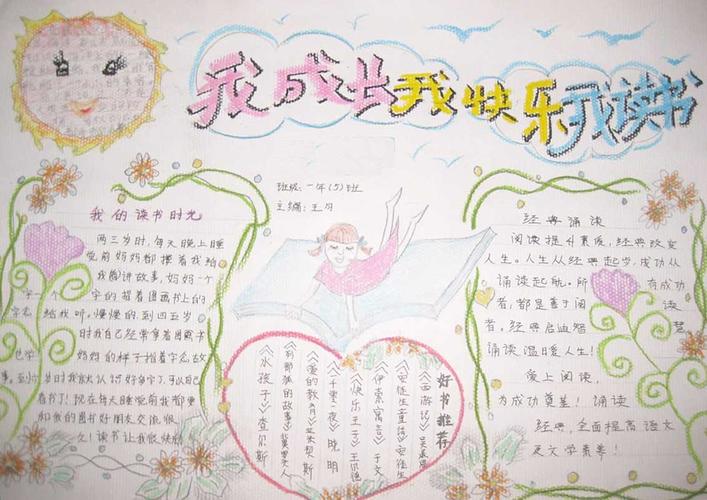 我成长 我快乐 我读书
班级：一年(5)班
主编：王匀
我的读书时光
两三岁时，每天晚上睡
觉前妈妈都搂着我给
我讲故事，妈妈一个
字一个字的指着图画书上的
给我听，慢慢的，到四五岁
时我自己经常拿着图画书
妈妈的样子指着字念故
岁时我就认识好多字了，可以自己
看书了！现在每天睡觉前我都要
和我的图书好朋友交流很
久！读书让我很快乐
好书推荐
《西游记》吴承恩
《安徒生童话》安徒生
《伊索寓言》于文
《快乐王子》王尔德
《一千零一夜》晓明
《爱的教育》亚米契斯
《列那狐的故事》
《水孩子》查尔斯
经典诵读
阅读提升素质，经典改变
人生。人生从经典起步，成功从
诵读起航。所有成功
者，都是善于阅读
者。经典启迪智慧
诵读温暖人生！
爱上阅读，
为成功奠基！诵读
经典，全面提高语文
及文学素养！